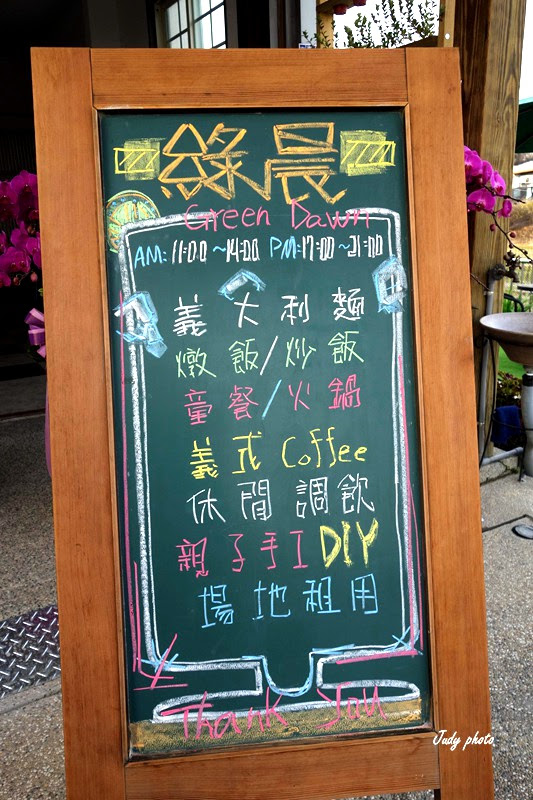 綠晨
Green Dawn
AM: 11:00 ~ 14:00 PM: 17:00 ~ 21:00
義大利麵
燉飯/炒飯
童餐/火鍋
義式 Coffee
休閒調飲
親子手工 DIY
場地租用
Thank You
Judy photo